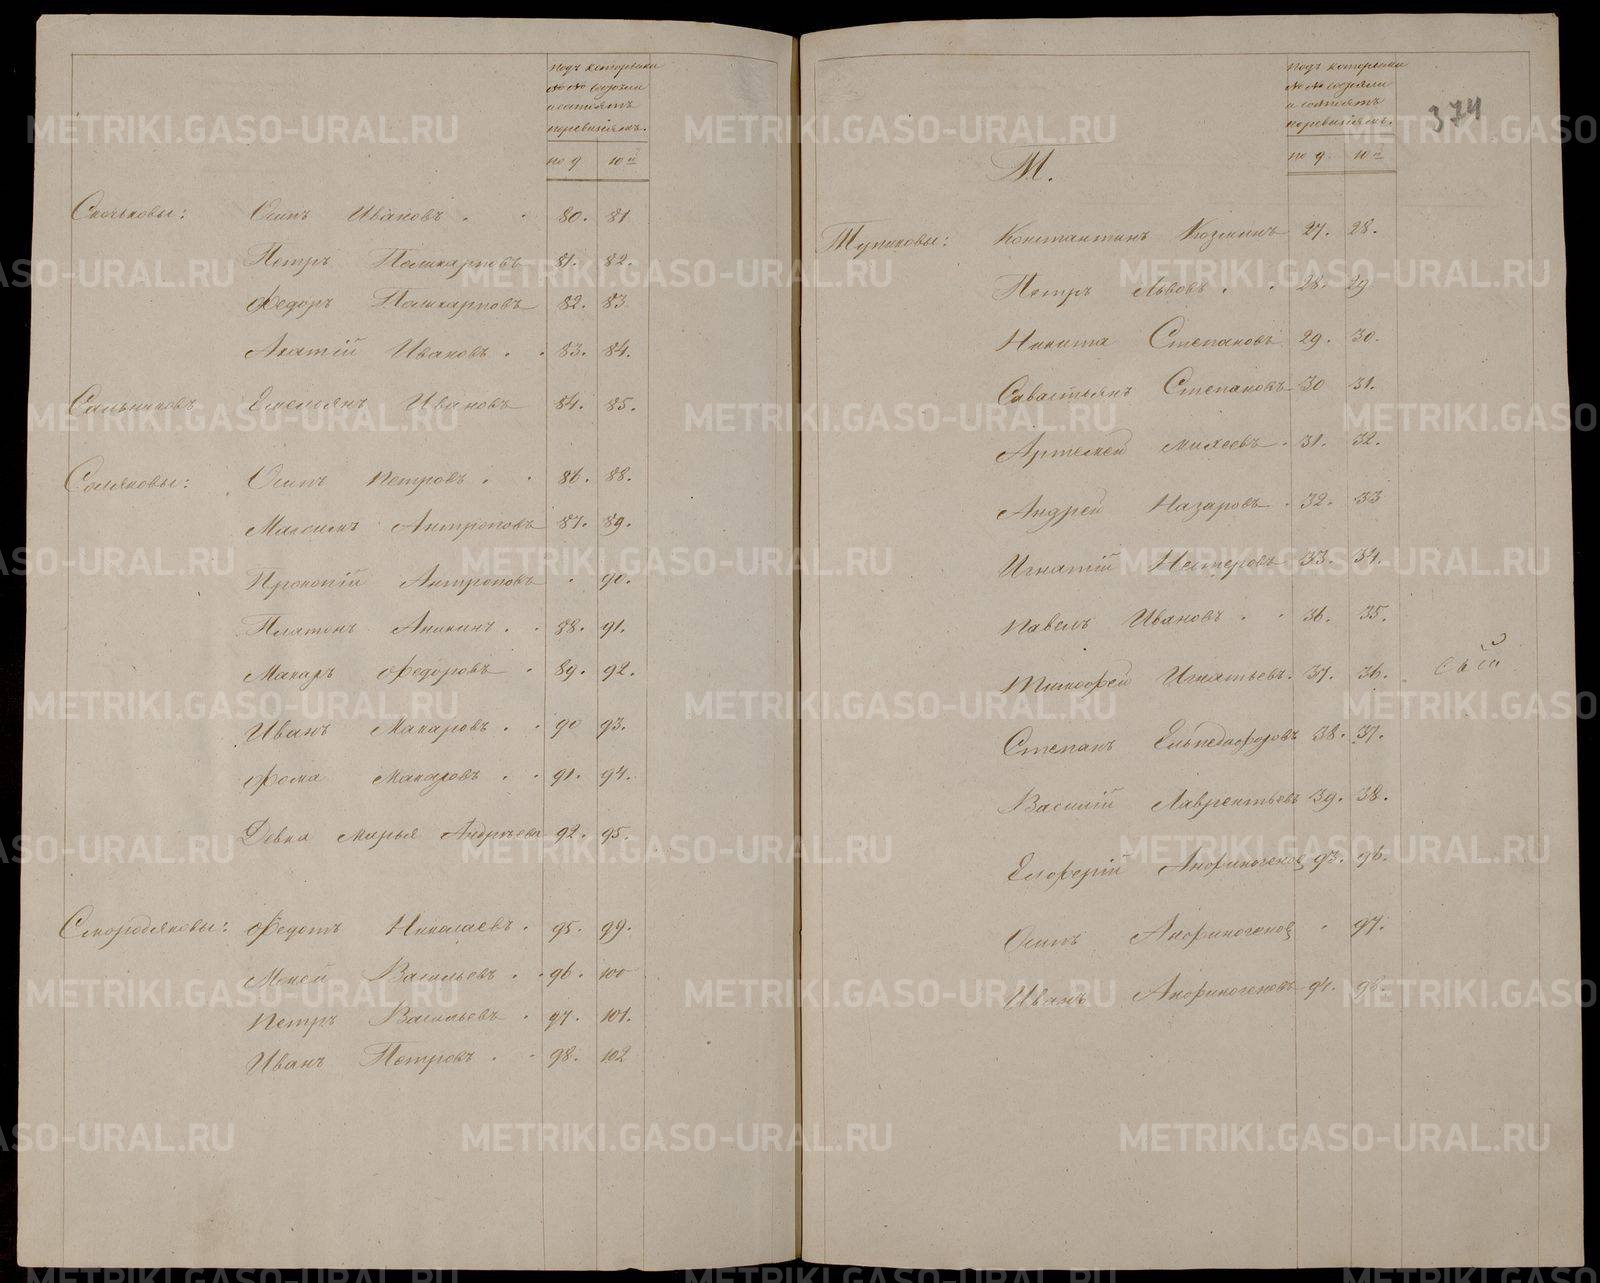 подъ которыми
№№ состояли
и состоятъ
по ревизіямъ.
по 9 10й
Скочковы: Осипъ Ивановъ . . 80. 81
Петръ Поликарповъ 81. 82.
Федоръ Поликарповъ 82. 83
Акатій Ивановъ . . 83. 84.
Сальниковъ Емельянъ Ивановъ 84. 85.
Соляковы: Осипъ Петровъ . . 86. 88.
Максимъ Антроповъ 87. 89.
Прокопій Антроповъ . 90.
Платонъ Аникинъ . . 88. 91.
Макаръ Федоровъ . 89. 92.
Иванъ Макаровъ . . 90 93.
Фома Макаровъ . . 91. 94.
Девка Марья Андреева 92. 95.
Скородяковы: Федотъ Николаевъ . 95. 99.
Мокей Васильевъ . . 96. 100
Петръ Васильевъ . 97. 101.
Иванъ Петровъ . . 98. 102
подъ которыми
№№ состояли
и состоятъ
по ревизіямъ.
по 9. 10й
374
Т.
Тупиковы: Константинъ Козминъ 27. 28.
Петръ Львовъ . . 28. 29
Никита Степановъ 29. 30.
Савастьянъ Степановъ 30 31.
Артемей Михеевъ . 31. 32.
Андрей Назаровъ . 32. 33
Игнатій Нестеровъ 33. 34.
Павелъ Ивановъ . . 36. 35.
Тимофей Игнатьевъ. 37. 36.
Степанъ Елпедифоровъ 38. 37.
Василій Лаврентьевъ 39. 38.
Елоферій Анфиногеновъ 93. 96.
Осипъ Анфиногеновъ . 97.
Иванъ Анфиногеновъ 94. 98.
METRIKI.GASO-URAL.RU